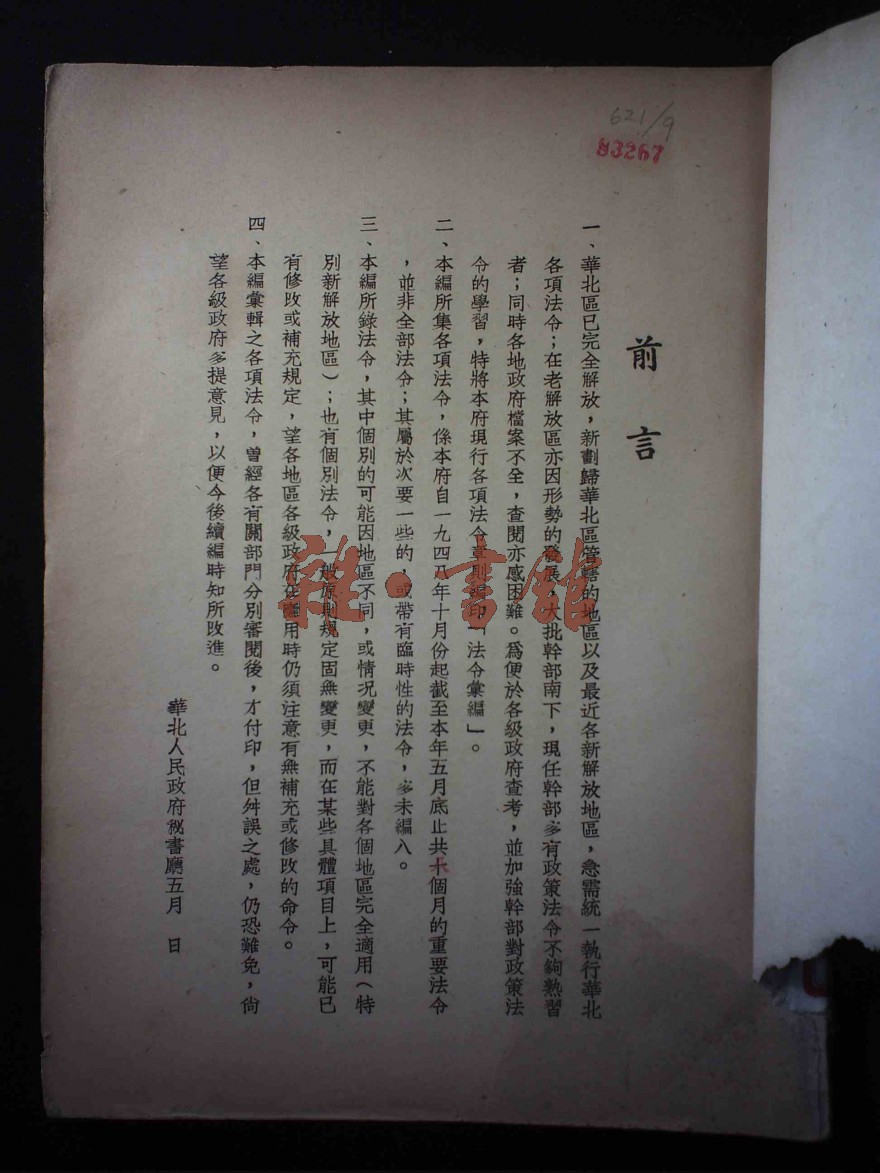 621/9
83267
前言
一、華北區已完全解放，新劃歸華北區管轄的地區以及最近各新解放地區，急需統一執行華北
各項法令；在老解放區亦因形勢的發展，大批幹部南下，現任幹部多有政策法令不夠熟習
者；同時各地政府檔案不全，查閱亦感困難。爲便於各級政府查考，並加強幹部對政策法
令的學習，特將本府現行各項法令章則編印「法令彙編」。
二、本編所集各項法令，係本府自一九四八年十月份起截至本年五月底止共十個月的重要法令
，並非全部法令；其屬於次要一些的，或帶有臨時性的法令，多未編入。
三、本編所錄法令，其中個別的可能因地區不同，或情况變更，不能對各個地區完全適用（特
別新解放地區）；也有個別法令，一般原則規定固無變更，而在某些具體項目上，可能已
有修改或補充規定，望各地區各級政府在應用時仍須注意有無補充或修改的命令。
四、本編彙輯之各項法令，曾經各有關部門分別審閱後，才付印，但舛誤之處，仍恐難免，尙
望各級政府多提意見，以便今後續編時知所改進。
華北人民政府秘書廳五月 日
雜·書館